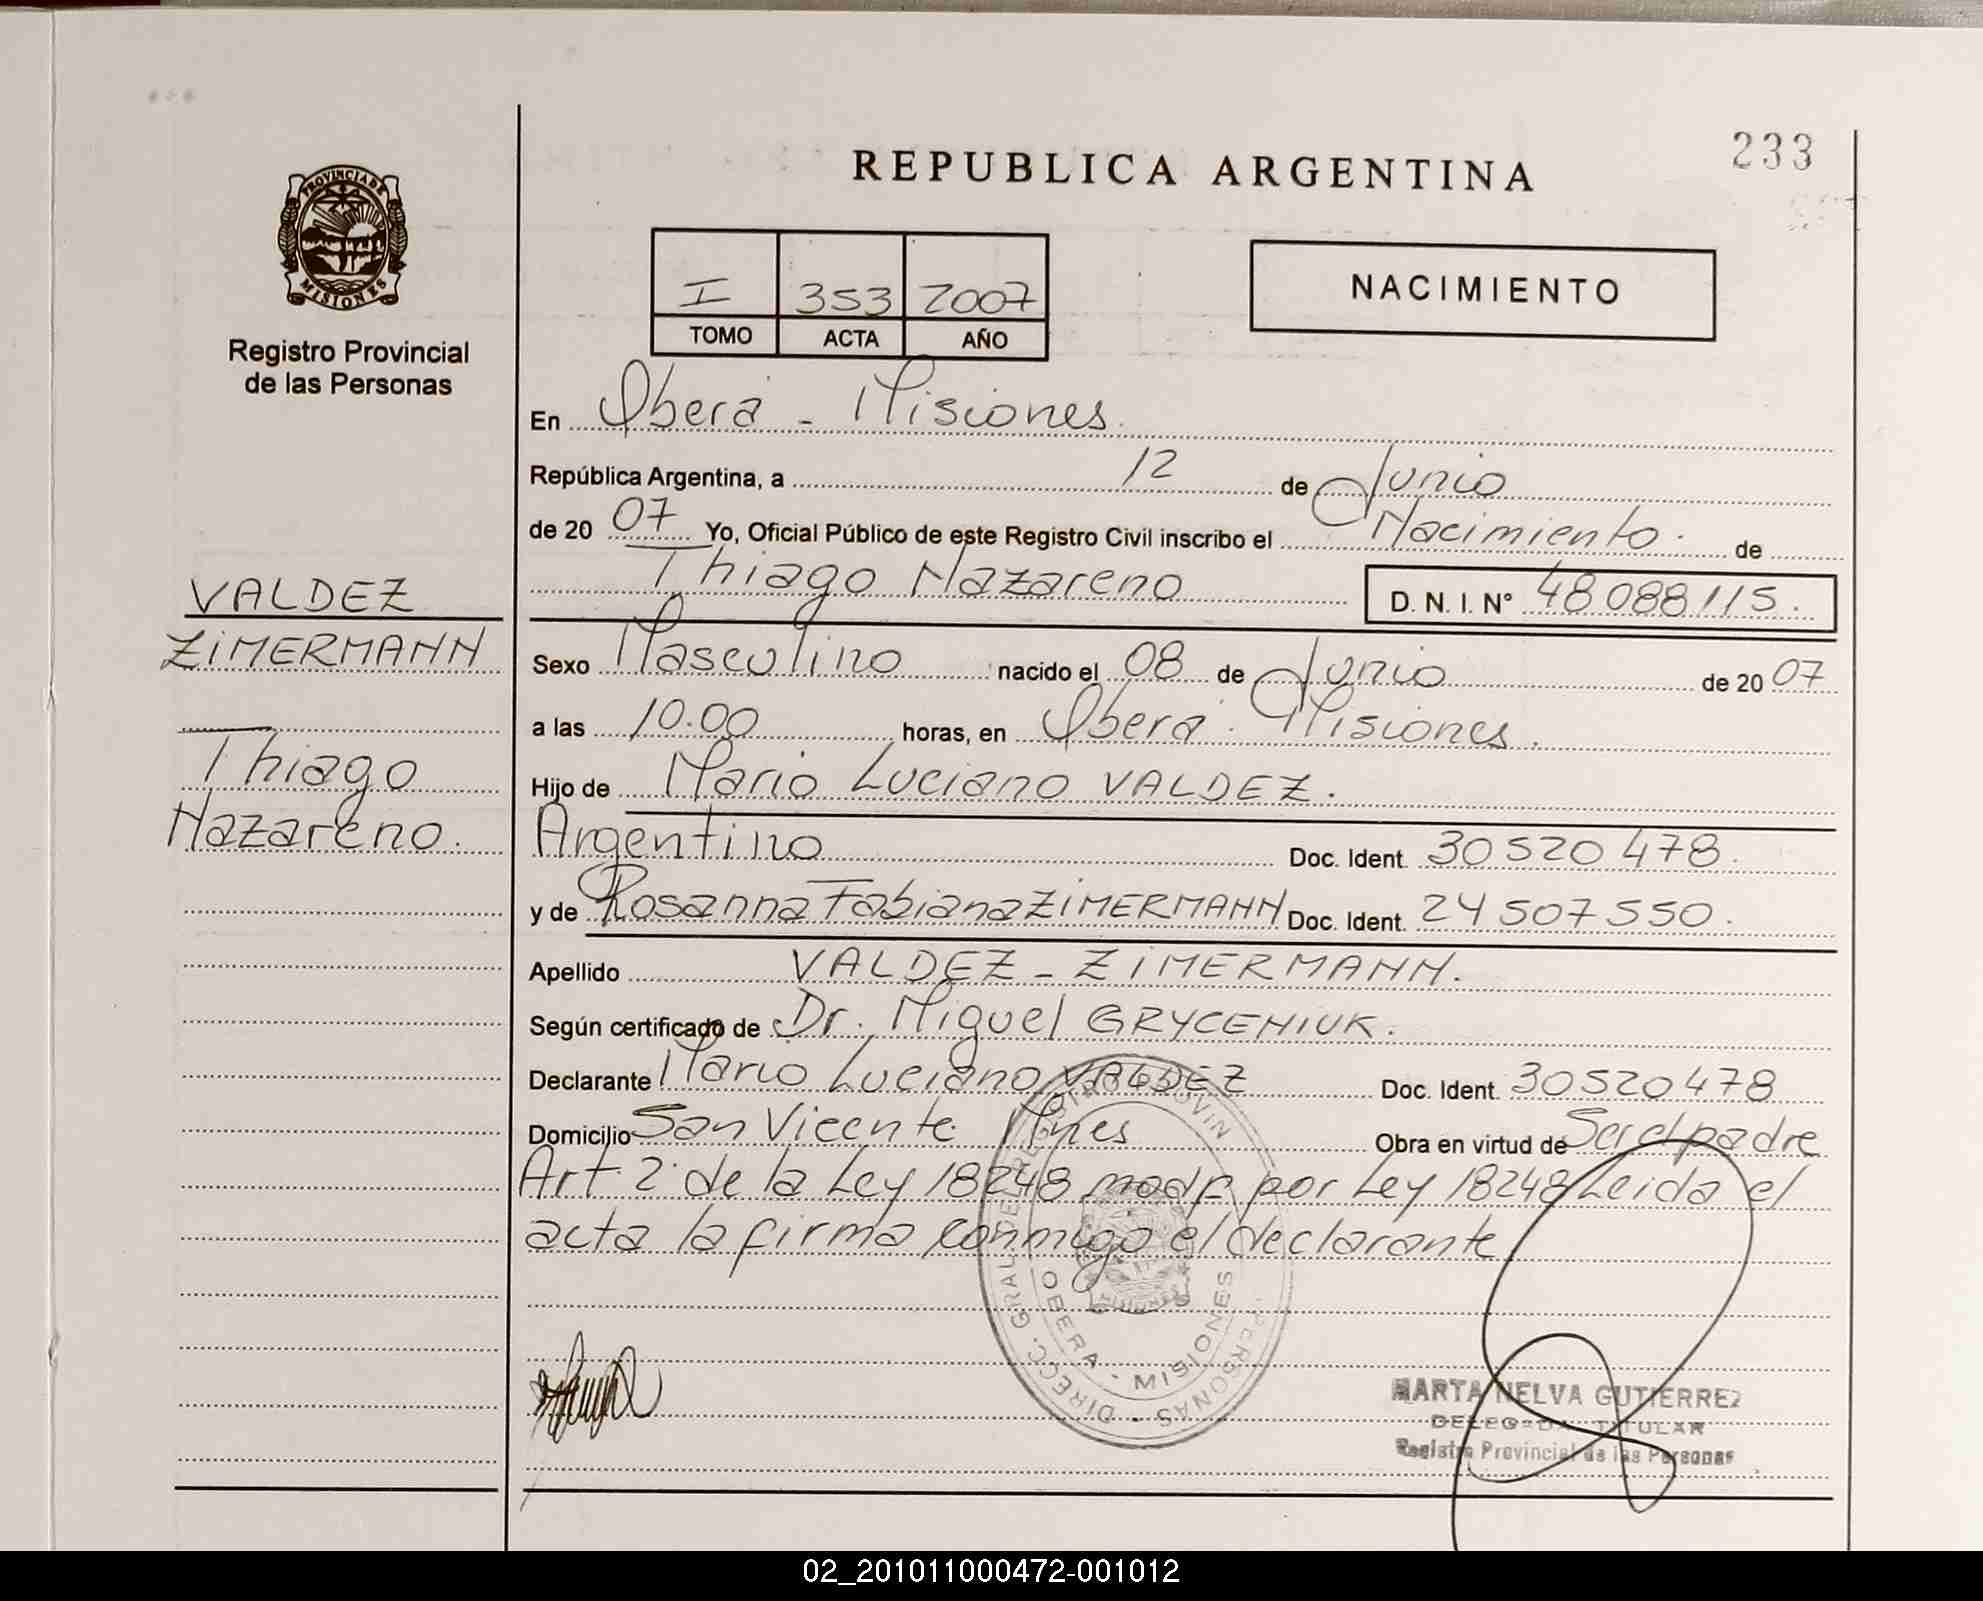 233
REPUBLICA ARGENTINA
PROVINCIA DE
MISIONES
Registro Provincial
de las Personas
I 353 2007
TOMO ACTA AÑO
NACIMIENTO
En Oberá - Misiones.
República Argentina, a 12 de Junio
de 20 07 Yo, Oficial Público de este Registro Civil inscribo el Nacimiento. de
Thiago Nazareno D. N. I. N° 48 088 115.
VALDEZ
ZIMERMANN
Thiago
Nazareno.
Sexo Masculino nacido el 08 de Junio de 20 07
a las 10.00 horas, en Oberá. Misiones.
Hijo de Mario Luciano VALDEZ.
Argentino Doc. Ident. 30 520 478.
y de Rosanna Fabiana ZIMERMANN Doc. Ident. 24 507 550.
Apellido VALDEZ - ZIMERMANN.
Según certificado de Dr. Miguel GRYCENIUK.
Declarante Mario Luciano VALDEZ Doc. Ident. 30520478
Domicilio San Vicente. Mnes Obra en virtud de Ser el padre
Art 2 de la Ley 18248 modf por Ley 18248 Leida el
acta la firma conmigo el declarante
DIRECC. GRAL DEL REGISTRO PROVIN PERSONAS
OBERA - MISIONES
MARTA NELVA GUTIERREZ
DELEGADA TITULAR
Registro Provincial de las Personas
02_201011000472-001012